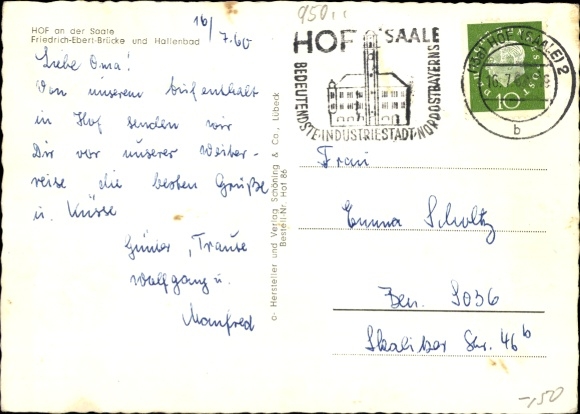 16/7.60
HOF an der Saale
Friedrich-Ebert-Brücke und Hallenbad
Liebe Oma!
Von unserem Aufenthalt
in Hof senden wir
Dir vor unserer Weiter-
reise die besten Grüße
u. Küsse
Günter, Traute
Wolfgang u.
Manfred
o- Hersteller und Verlag Schöning & Co., Lübeck
Bestell-Nr. Hof 86
950,-
HOF SAALE
BEDEUTENDSTE·INDUSTRIESTADT·NORDOSTBAYERNS
HOF (SAALE) 2
16.7.60
b
10
Frau
Emma Scholtz
Bln. SO36
Skalitzer Str. 46b
-,50